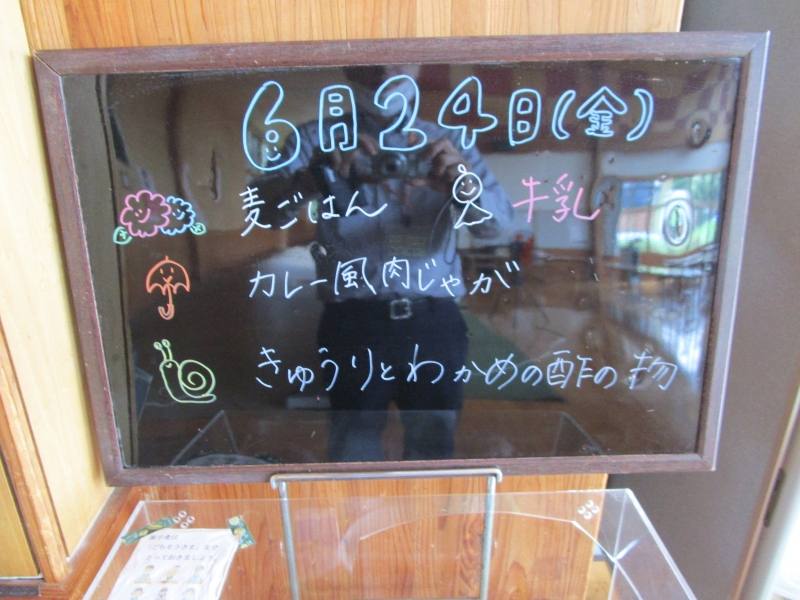 6月24日(金)
麦ごはん 牛乳
カレー風肉じゃが
きゅうりとわかめの酢の物